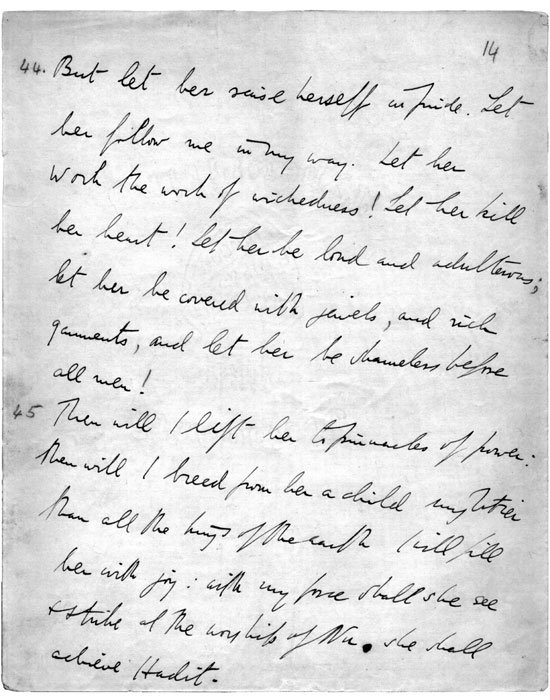 14
44. But let her raise herself in pride. Let
her follow me in my way. Let her
work the work of wickedness! Let her kill
her heart! Let her be loud and adulterous;
let her be covered with jewels, and rich
garments, and let her be shameless before
all men!
45 Then will I lift her to pinnacles of power:
then will I breed from her a child mightier
than all the kings of the earth. I will fill
her with joy: with my force shall she see
& strike at the worship of Nu. she shall
achieve Hadit.